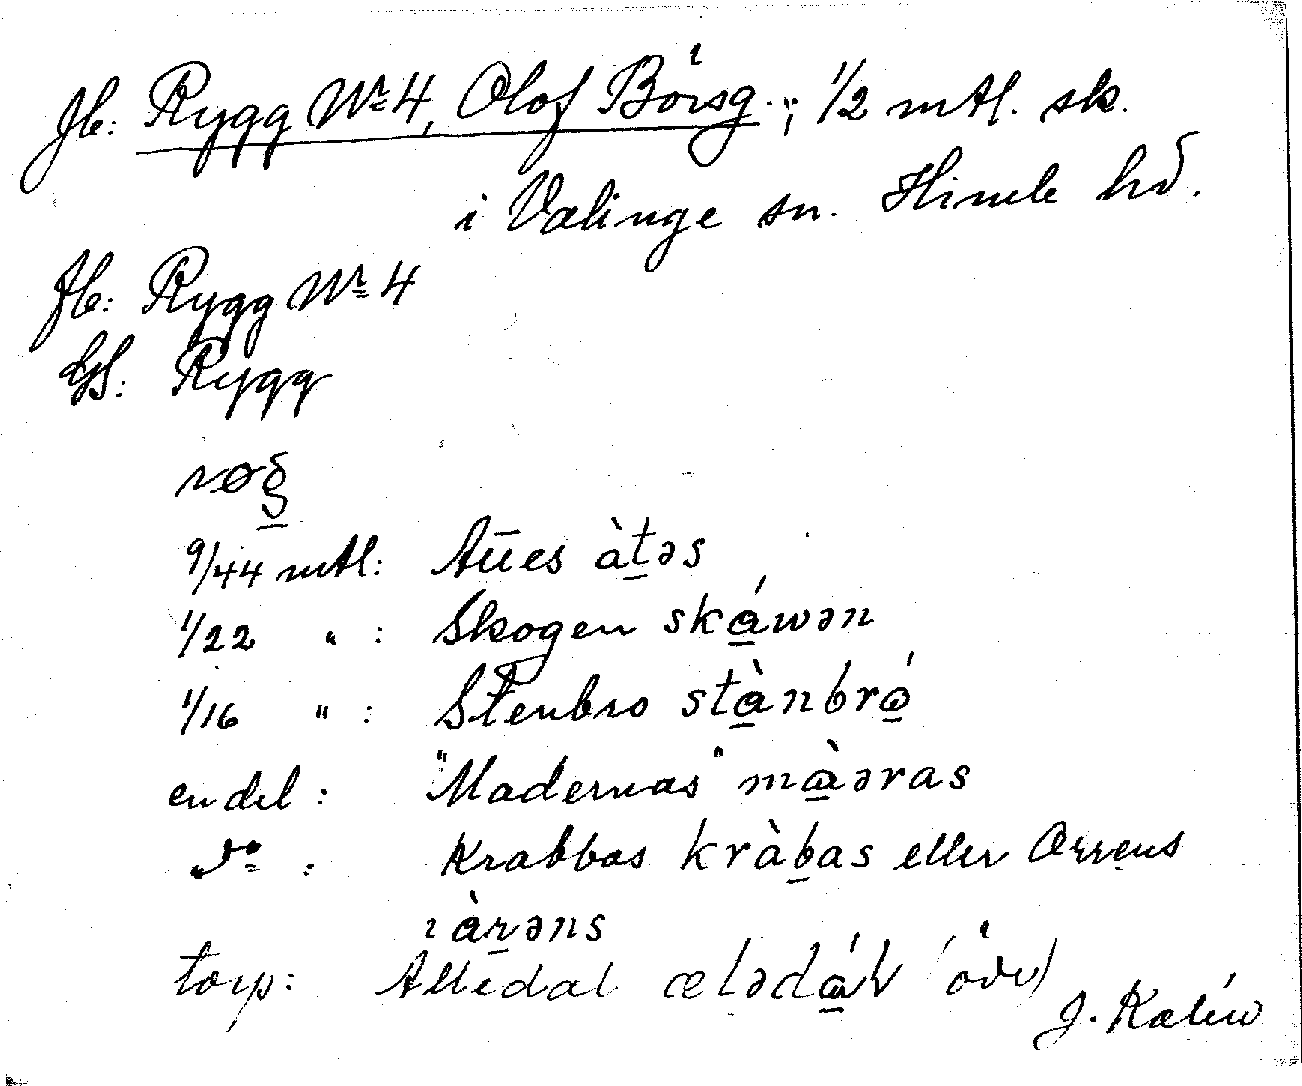 Jb: Rygg Nr 4, Olof Börsg.; 1/2 mtl. sk.
i Valinge sn. Himle hd.
Jb: Rygg Nr 4
GS: Rygg
røg̲
9/44 mtl: Aües àt̲əs
1/22 " : Skogen ská̲wən
1/16 " : Stenbro stà̲nbró̲
en del : "Madernas" mà̲əras
do : Krabbas kràb̲as eller Orrens
àr̲əns
torp: Alledal ælədá̲l (öde)
J. Kalén